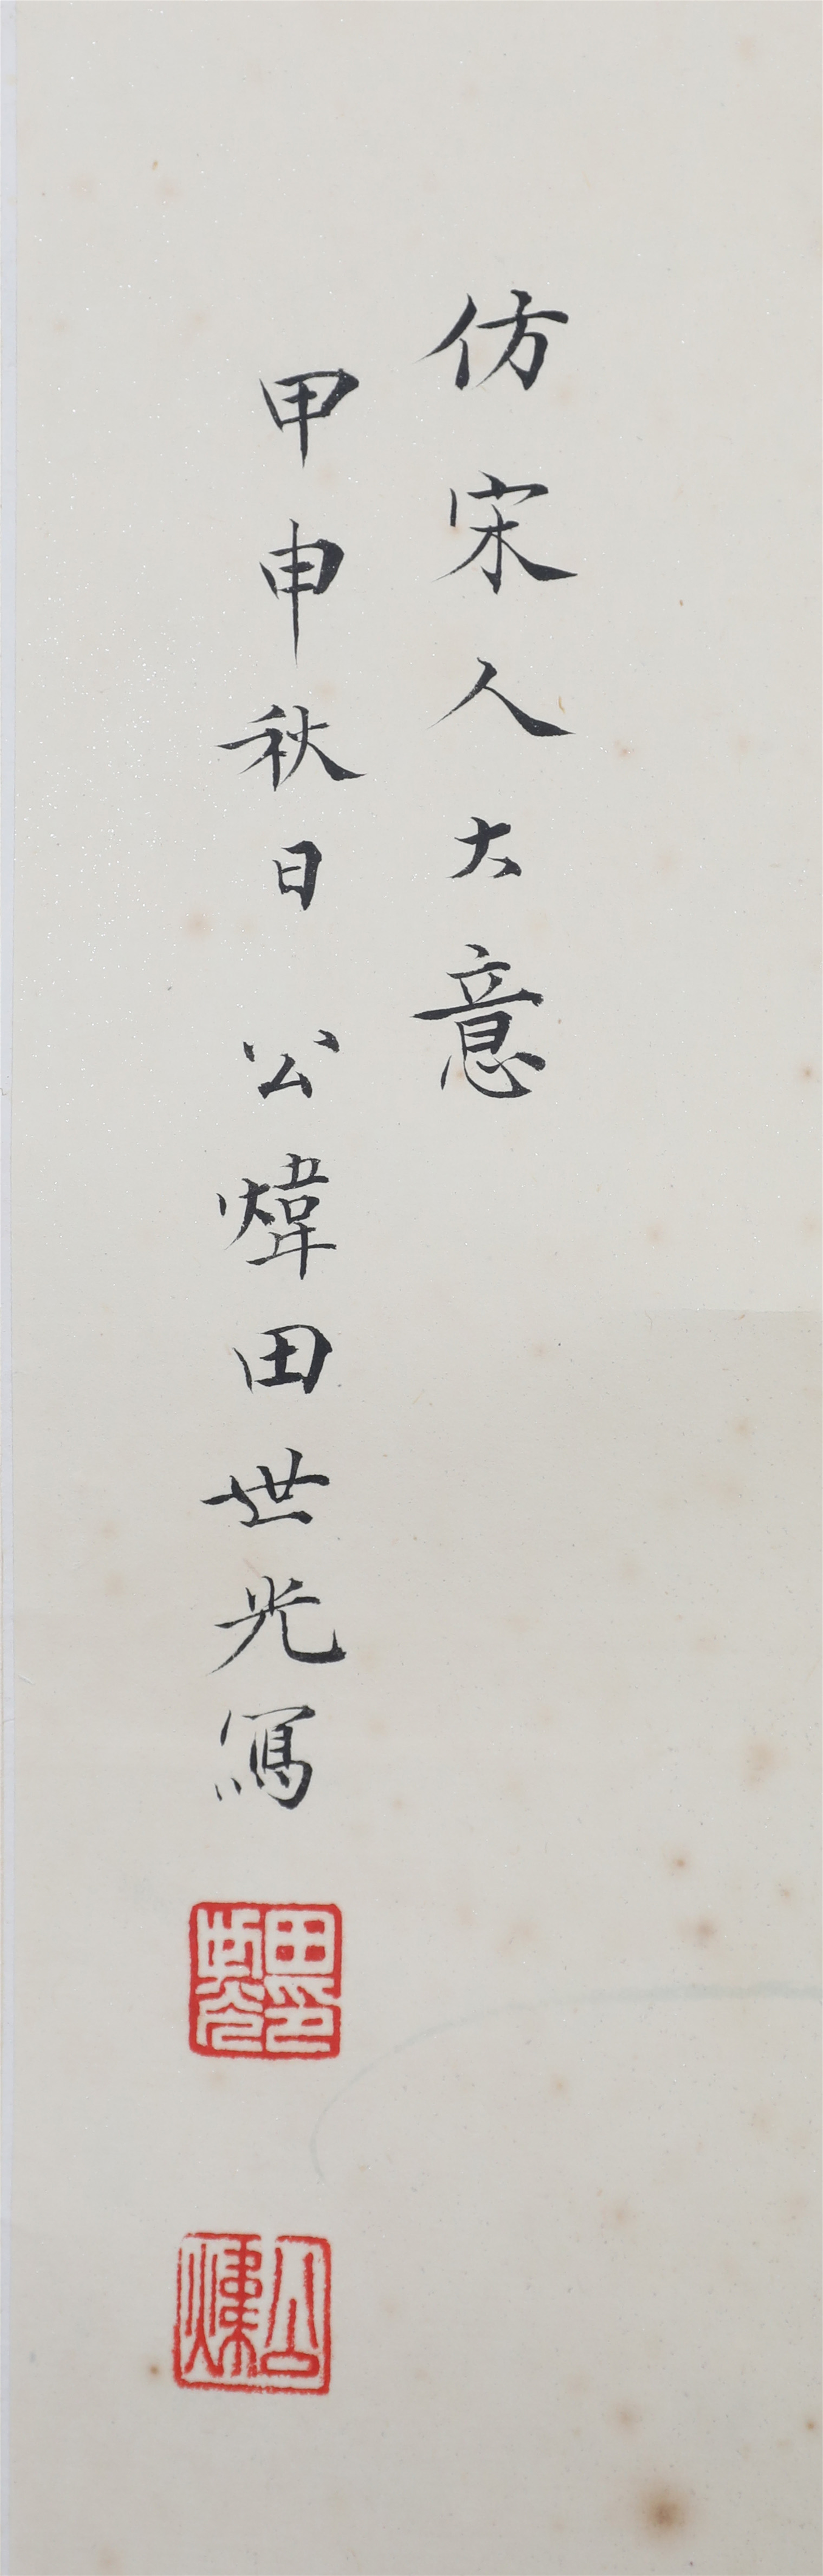 仿宋人大意
甲申秋日 公煒田世光寫
田世光印
公煒